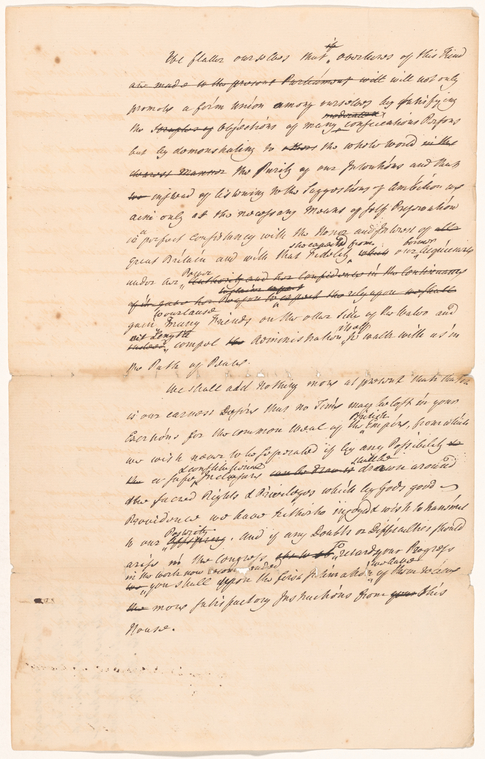 We flatter ourselves that if overtures of this Kind
are made to the present Parliament will will not only
promote a form union among ourselves by satisfying
the Scruples of Objections of many moderate & consciencious Persons
but by demonstrating to the whole World in the
clearest Manner the Purity of our Intentions and that
instead of listening to the Suggestions of Ambition we
aim only at the necessary means of self Preservation
in a perfect consistency with the Honor and Interest of
great Britain and with that Fidelity she expected from our
under her Power Authority and her confidence in the Continuance
of
gain many Friends on the other side of the Water and
at Length compel Administration itself to walk with us in
the Path of Peace.
We shall add nothing more at present than that
it our earnest Desire that no Time may be lost in your
Exertions for the common Weal of the British Empire from which
we wish never to be seperated if by any Possibility
a safe constitutional can be drawn shall be drawn around
the sacred Rights & Priviledges which by Gods good
Providence we have hitherto injoyed & wish to transmit
to our Offspring Posterity. And if any Doubts or Difficulties should
arise in the Congress to retard your Progress
in the work now recommended
you shall upon the first Intimation of them receive
the more satisfactory Instructions from your this
House.